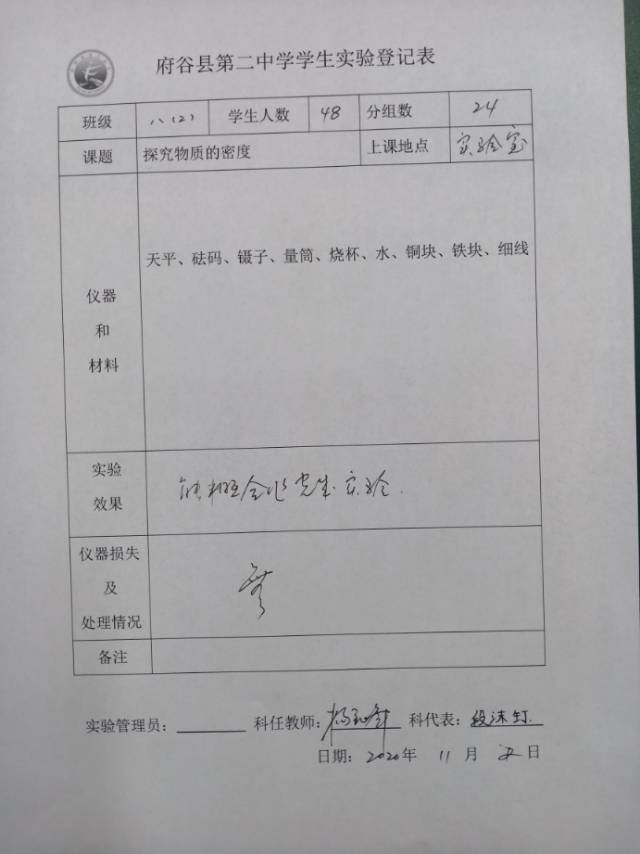 府谷县第二中学学生实验登记表
班级 八(2) 学生人数 48 分组数 24
课题 探究物质的密度 上课地点 实验室
天平、砝码、镊子、量筒、烧杯、水、铜块、铁块、细线
仪器
和
材料
实验
效果
能 合作完成实验.
仪器损失
及
处理情况
无
备注
实验管理员: 科任教师: 科代表: 段沫钉
日期: 2020年 11 月 日